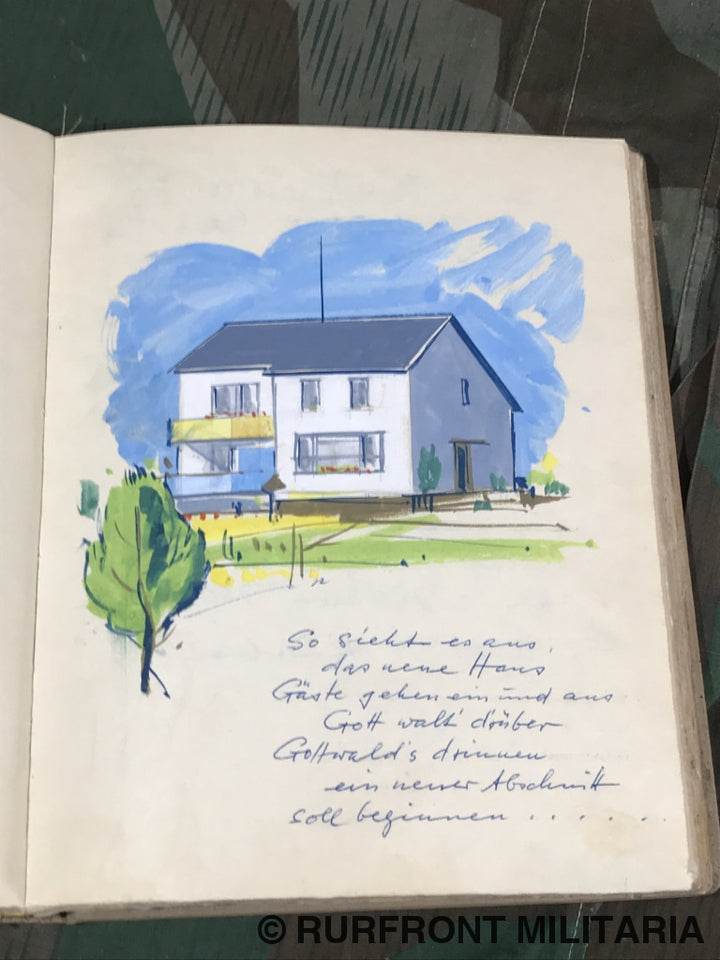 So sieht es aus,
das neue Haus
Gäste gehen ein und aus
Gott walt' drüber
Gottwald's drinnen
ein neuer Abschnitt
soll beginnen . . . . . .
© RURFRONT MILITARIA